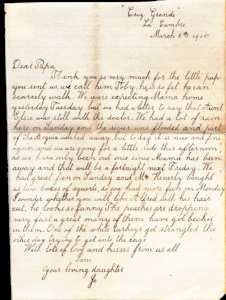 "Casa Grande"
La Cumbre
March 8th 19
Dear Papa,
Thank you so very much for the little pup
you sent us, we call him Toby, he is so fat he can
scarcely walk. We were expecting Mama home
yesterday Tuesday but we had a letter to say that Aunt
Elsie was still with the doctor. We had a lot of rain
here on Sunday and the river was flooded and part
of the washed away but to day it is nice and fine
again and we are going for a little ride this afternoon,
as we have only been out once since Mama has been
away and that will be a fortnight next Friday. We
had great fun on Sunday and Mr. bought
us two boxes of squibs, so you had more fun on Monday
I wonder whether you will like Alfred with his hair
cut, he looks so funny. The peaches are dropping
very fast a great many of them have got
in them. One of the white turkeys got strangled the
other day trying to get into the cage
With lots of love and kisses from us all
I am
Your loving daughter